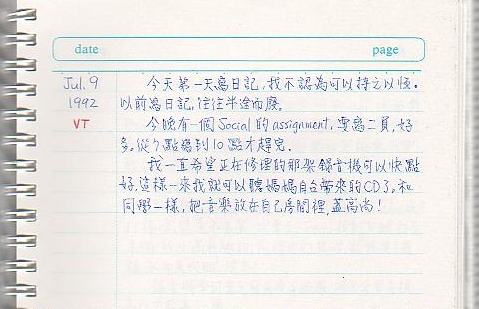 date page
Jul. 9 今天第一天寫日記,我不認為可以持之以恆。
1992 以前寫日記,往往半途而廢。
VT 今晚有一個Social的assignment,要寫二頁,好
多。從7點趕到10點才趕完。
我一直希望正在修理的那架錄音機可以快點
好,這樣一來我就可以聽媽媽自台帶來的CD了。和
同學一樣,把音樂放在自己房間裡,蓋高尚!